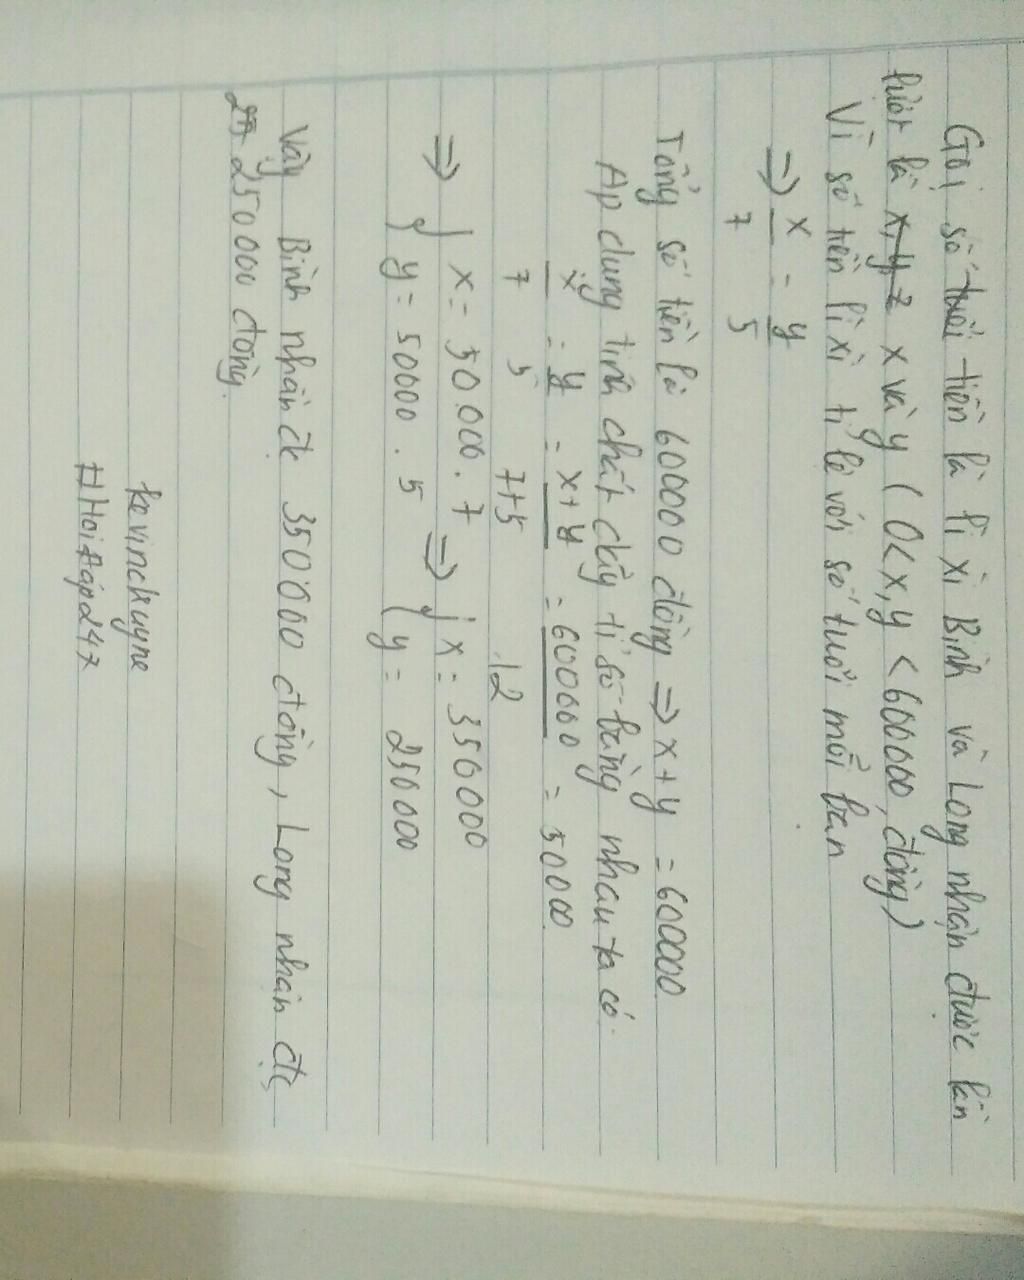 Gọi số tuổi tiền là lì xì Bình và Long nhận được lần
lượt là x, y z x và y ( 0 < x, y < 600000, đồng)
Vì số tiền lì xì tỉ lệ với số tuổi mỗi bạn
=> x/7 = y/5
Tổng số tiền là 600000 đồng => x + y = 600000
Áp dụng tính chất dãy tỉ số bằng nhau ta có
x/7 = y/5 = x+y/7+5 = 600000/12 = 50000
=> { x = 50.000. 7 => { x = 350000
{ y = 50000 . 5 { y = 250000
Vậy Bình nhận đc 350000 đồng, Long nhận đc
250000 đồng.
kevinchuyne
#HoiĐáp247